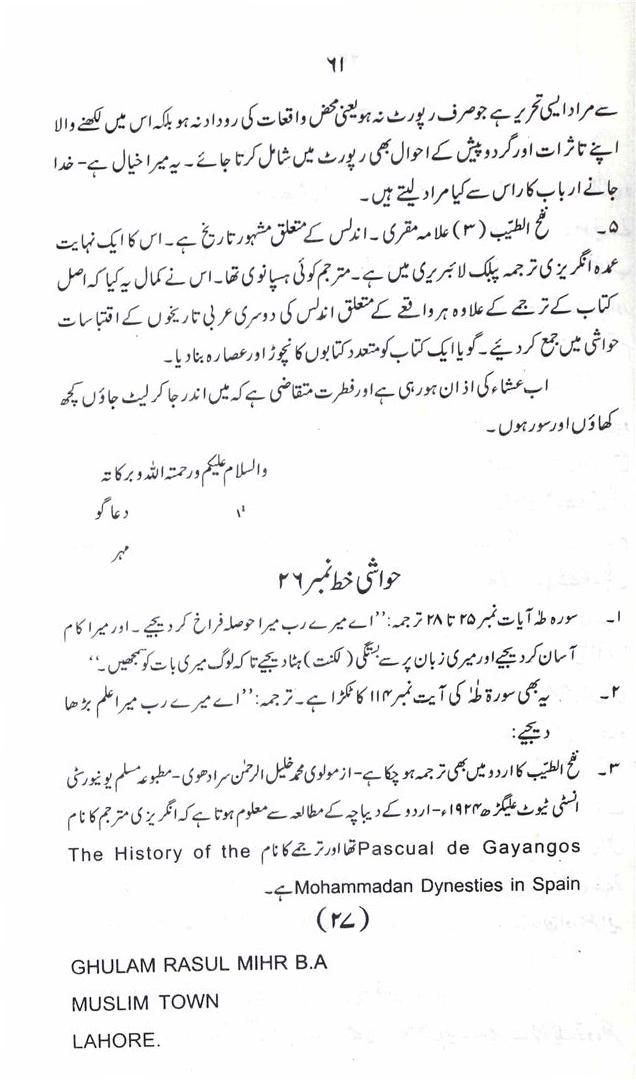 ۶۱
سے مراد ایسی تحریر ہے جو صرف رپورٹ نہ ہو یعنی محض واقعات کی روداد نہ ہو بلکہ اس میں لکھنے والا
اپنے تاثرات اور گردوپیش کے احوال بھی رپورٹ میں شامل کرتا جائے۔ یہ میرا خیال ہے- خدا
جانے ارباب کار اس سے کیا مراد لیتے ہیں۔
۵۔ نفح الطیّب (۳) علامہ مقری۔ اندلس کے متعلق مشہور تاریخ ہے۔ اس کا ایک نہایت
عمدہ انگریزی ترجمہ پبلک لائبریری میں ہے۔ مترجم کوئی ہسپانوی تھا۔ اس نے کمال یہ کیا کہ اصل
کتاب کے ترجمے کے علاوہ ہر واقعے کے متعلق اندلس کی دوسری عربی تاریخوں کے اقتباسات
حواشی میں جمع کر دیئے۔ گویا ایک کتاب کو متعدد کتابوں کا نچوڑ اور عصارہ بنا دیا۔
اب عشاء کی اذان ہو رہی ہے اور فطرت متقاضی ہے کہ میں اندر جا کر لیٹ جاؤں کچھ
کھاؤں اور سو رہوں۔
والسلام علیکم ورحمتہ اللہ وبرکاتہ
دعاگو
مہر
حواشی خط نمبر ۲۶
۱۔ سورہ طہٰ آیات نمبر ۲۵ تا ۲۸ ترجمہ: ’’اے میرے رب میرا حوصلہ فراخ کر دیجیے۔ اور میرا کام
آسان کر دیجیے اور میری زبان پر سے بستگی (لکنت) ہٹا دیجیے تاکہ لوگ میری بات کو سمجھیں۔‘‘
۲۔ یہ بھی سورۃ طہٰ کی آیت نمبر ۱۱۴ کا ٹکڑا ہے۔ ترجمہ: ’’اے میرے رب میرا علم بڑھا
دیجیے:
۳۔ نفح الطیّب کا اردو میں بھی ترجمہ ہو چکا ہے- از مولوی محمد خلیل الرحمٰن سرادھوی- مطبوعہ مسلم یونیورسٹی
انسٹی ٹیوٹ علیگڑھ ۱۹۲۴ء- اردو کے دیباچہ کے مطالعہ سے معلوم ہوتا ہے کہ انگریزی مترجم کا نام
Pascual de Gayangos تھا اور ترجمے کا نام The History of the
Mohammadan Dynesties in Spain ہے۔
(۲۷)
GHULAM RASUL MIHR B.A
MUSLIM TOWN
LAHORE.